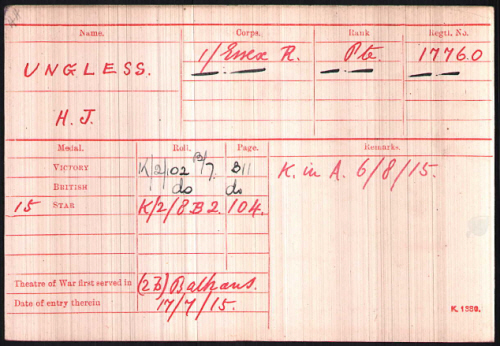 Name. Corps. Rank Regtl. No.
UNGLESS. 1/Essex R. Pte. 17760
H. J.
Medal. Roll. Page. Remarks.
VICTORY K/2/102 B/7 B11 K. in A. 6/8/15.
BRITISH do do
15 STAR K/2/8 B2. 104.
Theatre of War first served in (2B) Balkans.
Date of entry therein 17/7/15.
K. 1380.